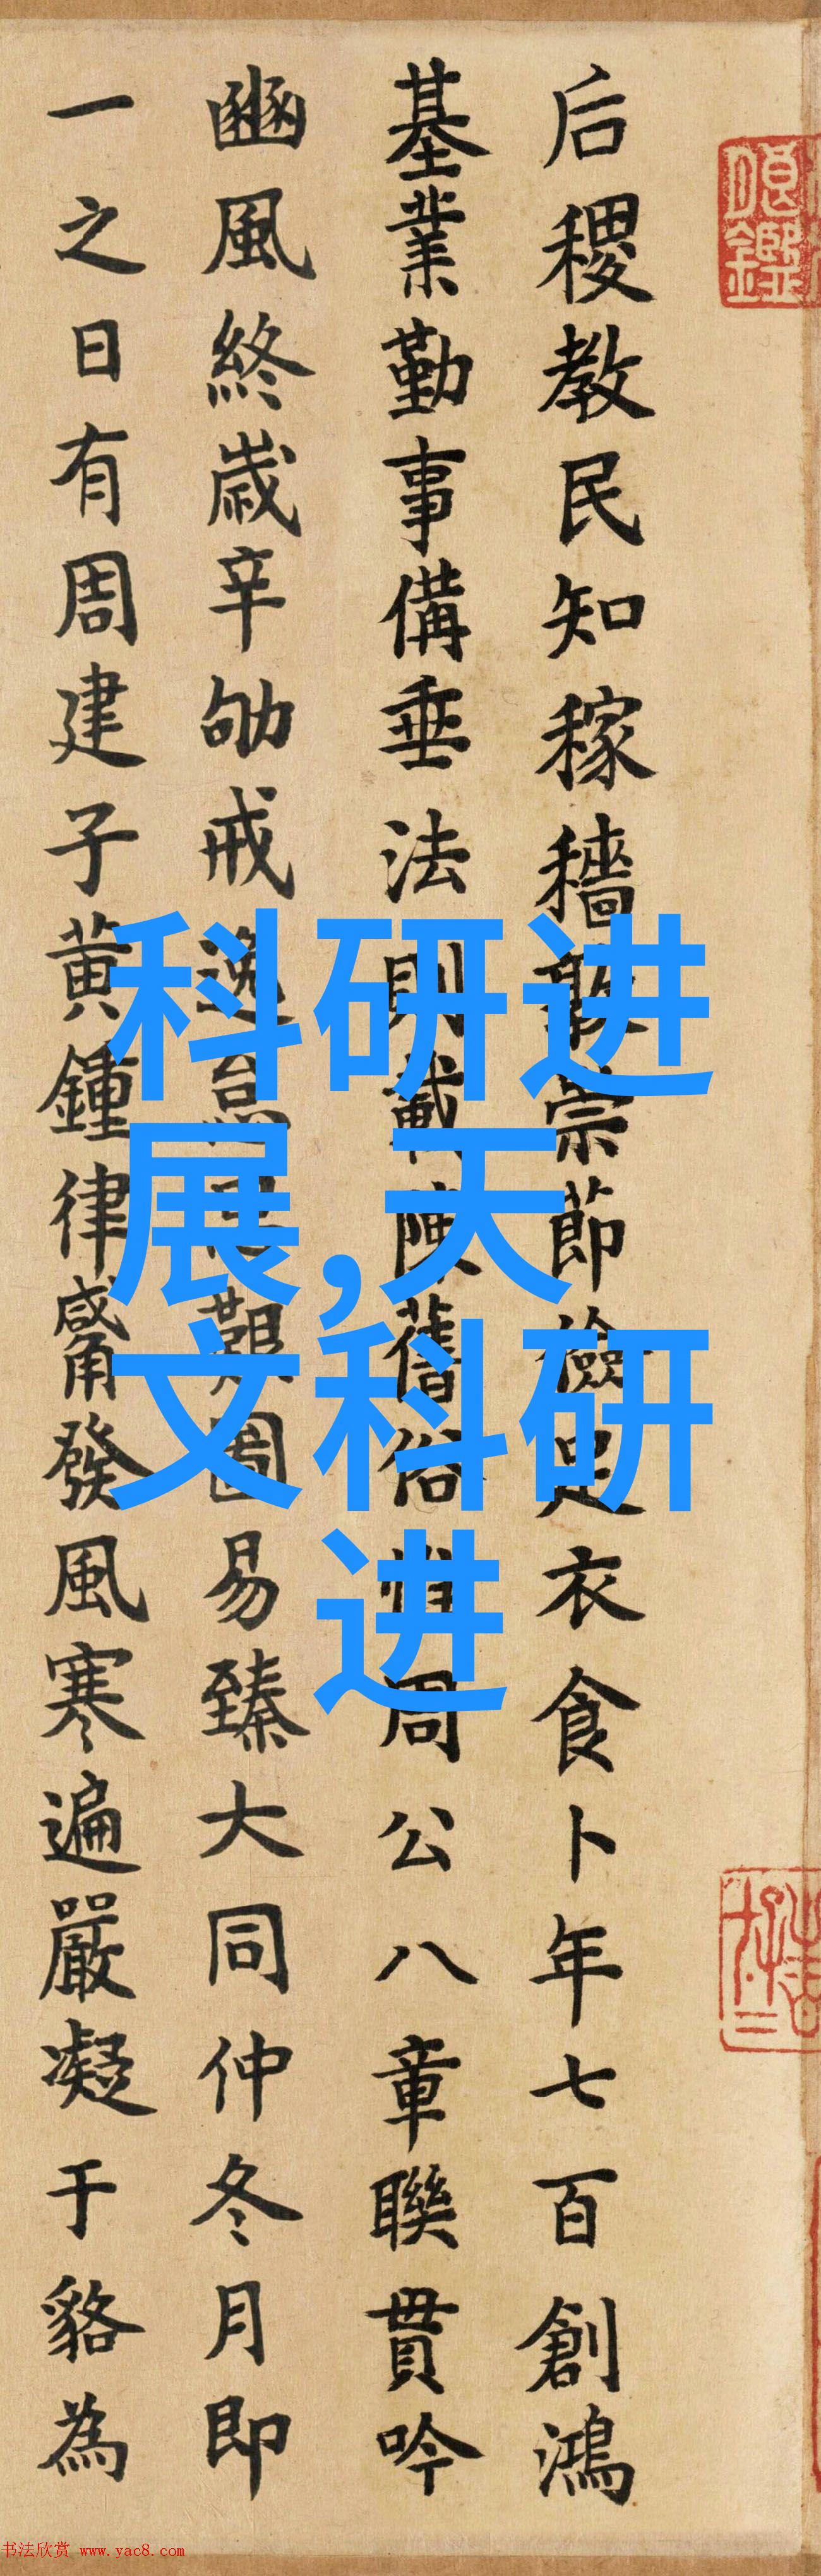 后稷教民知稼穡敦崇節儉足衣食卜年七百創鴻
基業勤事備垂法則載陳舊俗惟周公八章聯貫吟
豳風終歲辛劬戒逸艱圖易臻大同仲冬月即
一之日有周建子黃鍾律觱發風寒遍嚴凝于貉為
科研进
展,天
文科研
进
书法欣赏 www.yac8.com